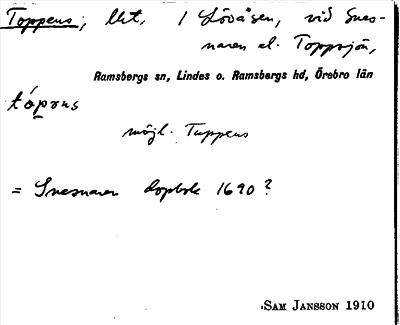 Toppens, lht, i Lövåsen, vid Snes-
naren el. Toppsjön,
Ramsbergs sn, Lindes o. Ramsbergs hd, Örebro län
tópɷns
möjl. Tuppens
= Snesnaren dopbok 1690?
SAM JANSSON 1910